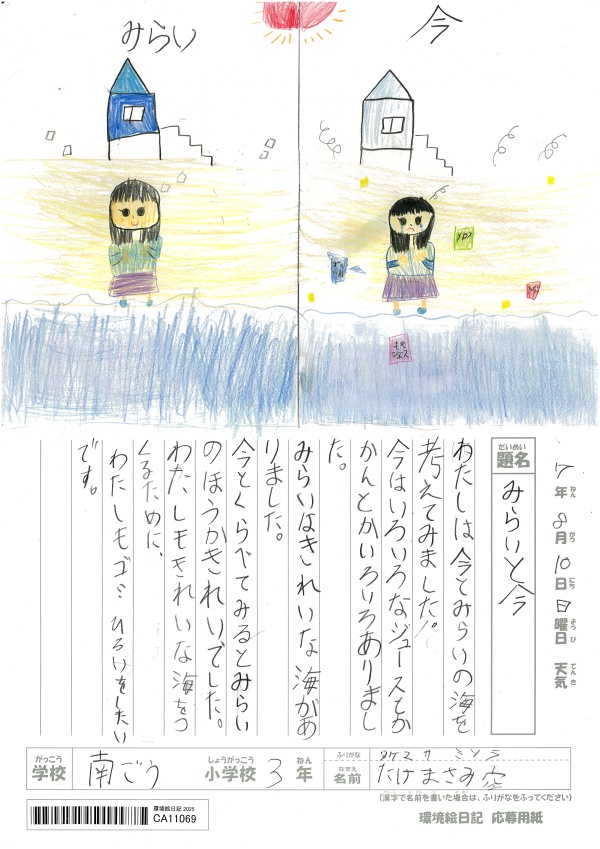 みらい
今
7年8月10日日曜日 天気
ねん
がつ
にち
ようび
てんき
だいめい
題名
みらいと今
わたしは今とみらいの海を
考えてみました。
今はいろいろなジュースとか
かんとかいろいろありまし
た。
みらいはきれいな海があ
りました。
今とくらべてみるとみらい
のほうがきれいでした。
わたしもきれいな海をつ
くるために、
わたしもゴミひろいをしたい
です。
がっこう
学校
南ごう
しょうがっこう
小学校
3
ねん
年
ふりがな
タケマサ ミソラ
なまえ
名前
たけまさみ空
(漢字で名前を書いた場合は、ふりがなをふってください)
環境絵日記 2025
CA11069
環境絵日記 応募用紙